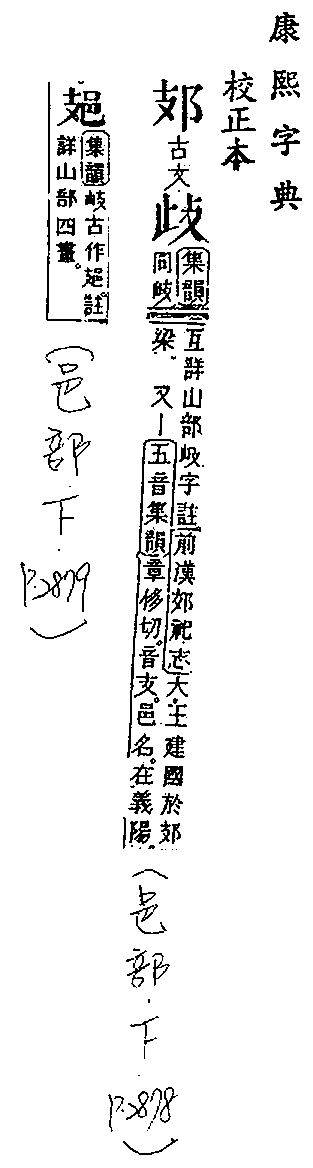 康熙字典
校正本
郂
古文
𡵆集韻同歧
互詳山部岐字註前漢郊祀志大王建國於郂
梁 又｜五音集韻章移切音支邑名在義陽
(邑部.下.P.2878)
集韻岐古作𨙸註
詳山部四畫。
(邑部.下.P.2879)